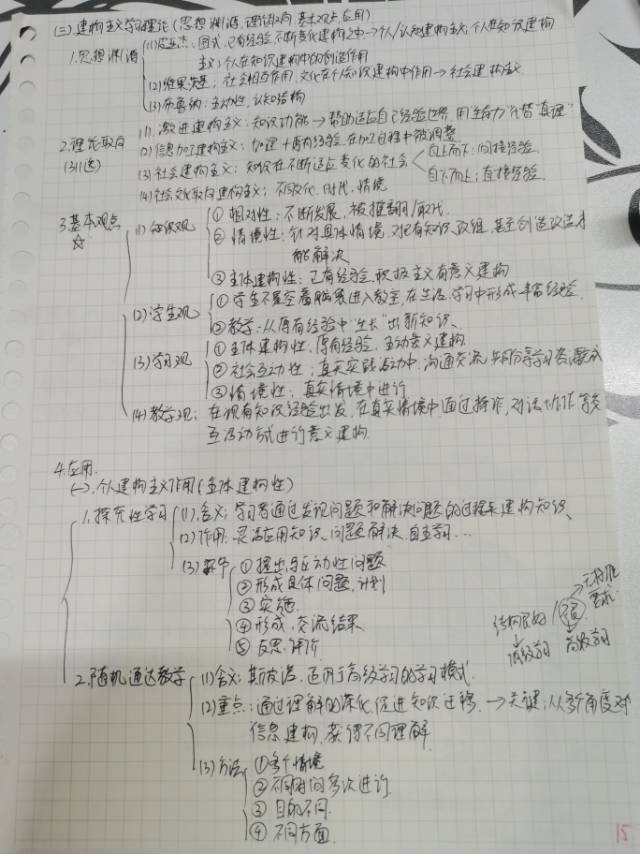 (三)建构主义学习理论(思想渊源,理论取向,基本观点,应用)
1.思想渊源 (1)皮亚杰:图式,已有经验不断变化建构之中→个人/认知建构主义,个人在知识建构
主义,个人在知识建构中的创造作用
(2)维果茨基:社会相互作用,文化在个人知识建构中作用→社会建构主义
(3)布鲁纳:主动性,认知结构
2.理论取向 (1)激进建构主义:知识功能→帮助适应自己经验世界,用"生存力"代替"真理"
(2)信息加工建构主义:加建+原有经验,在加工过程中被调整
自上而下:间接经验
(3)社会建构主义:知识在不断适应变化的社会
自下而上:直接经验
(4)社会文化取向建构主义:不同文化,时代,情境
3.基本观点
☆
(1)知识观 ①相对性:不断发展,被推翻/取代
②情境性:针对具体情境,对已有知识改组,甚至创造改造才
能解决
③主体建构性:已有经验,积极主义有意义建构
(2)学生观 ①学生不是空着脑袋进入教室,在生活、学习中形成丰富经验
②教学:从原有经验中"生长"出新知识、
(3)学习观 ①主体建构性,原有经验,主动意义建构
②社会互动性:真实实践活动中,沟通交流,共同分享学习资源完成
③情境性:真实情境中进行
(4)教学观:在现有知识经验出发,在真实情境中通过操作,对话,协作等
互活动式进行意义建构.
4.应用.
(一).个人建构主义作用(主体建构性)
1.探究性学习 (1)含义:学习者通过发现问题和解决问题的过程来建构知识、
(2)作用:灵活应用知识、问题解决、自主学习...
(3)环节 ①提出驱动性问题
②形成具体问题,计划
③实施
④形成、交流结果
⑤反思、评价
结构良好/不良
初级学习 高级学习
2.随机通达教学 (1)含义,斯皮罗,适用于高级学习的学习模式
(2)重点:通过理解的深化,促进知识迁移.→关键:从多角度对
信息建构,获得不同理解
(3)方法 ①多个情境
②不同时间多次进行
③目的不同
④不同方面